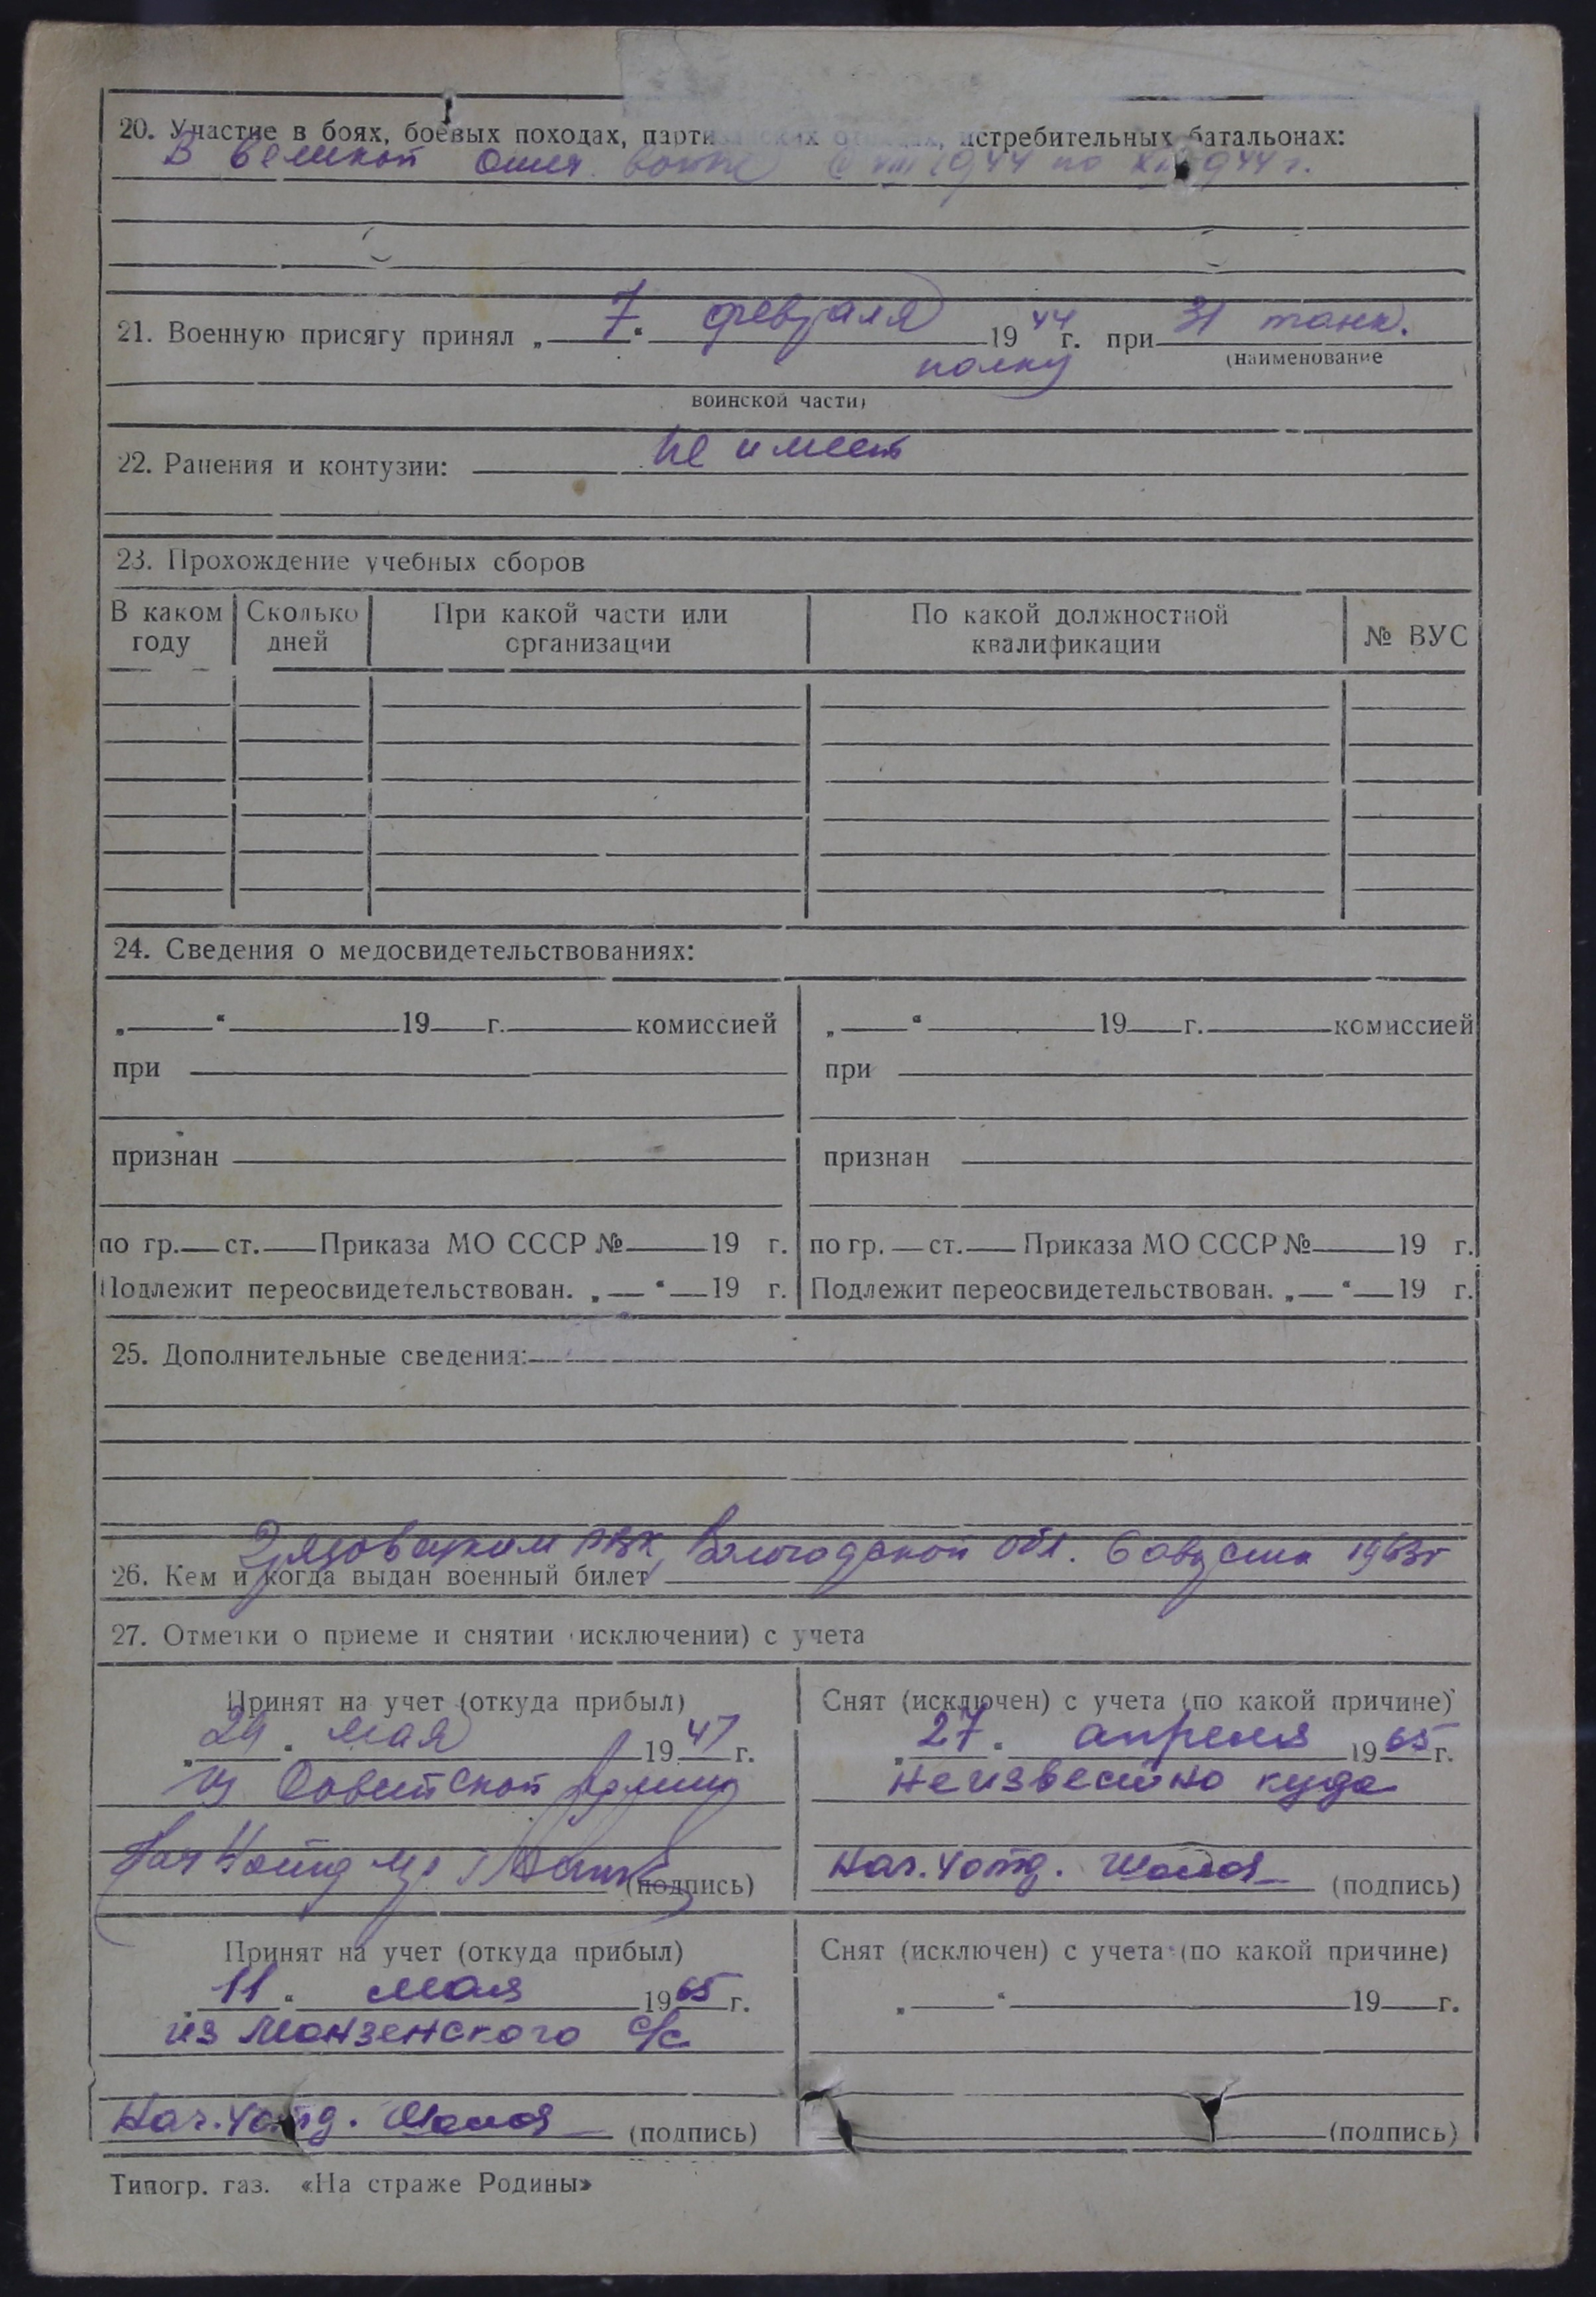 20. Участие в боях, боевых походах, партизанских отрядах, истребительных батальонах:
В Великой Отеч. войне с VIII 1944 по XI 1944 г.
21. Военную присягу принял „ 7 “ февраля 1944 г. при 31 танк.
(наименование
полку
воинской части)
22. Ранения и контузии: не имеет
23. Прохождение учебных сборов
В каком году Сколько дней При какой части или организации По какой должностной квалификации № ВУС
24. Сведения о медосвидетельствованиях:
„ “ 19 г. комиссией „ “ 19 г. комиссией
при при
признан признан
по гр. ст. Приказа МО СССР № 19 г. по гр. ст. Приказа МО СССР № 19 г.
Подлежит переосвидетельствован. „ “ 19 г. Подлежит переосвидетельствован. „ “ 19 г.
25. Дополнительные сведения:
Грязовецким РВК, Вологодской обл. 6 августа 1963 г
26. Кем и когда выдан военный билет
27. Отметки о приеме и снятии (исключении) с учета
Принят на учет (откуда прибыл) Снят (исключен) с учета (по какой причине)
„ 29 “ мая 1947 г. „ 27 “ апреля 1965 г.
из Советской Армии неизвестно куда
Нач (подпись) Нач. 4 отд. (подпись)
Принят на учет (откуда прибыл) Снят (исключен) с учета (по какой причине)
„ 11 “ мая 1965 г. „ “ 19 г.
из Монзенского с/с
Нач. 4 отд. (подпись) (подпись)
Типогр. газ. «На страже Родины»